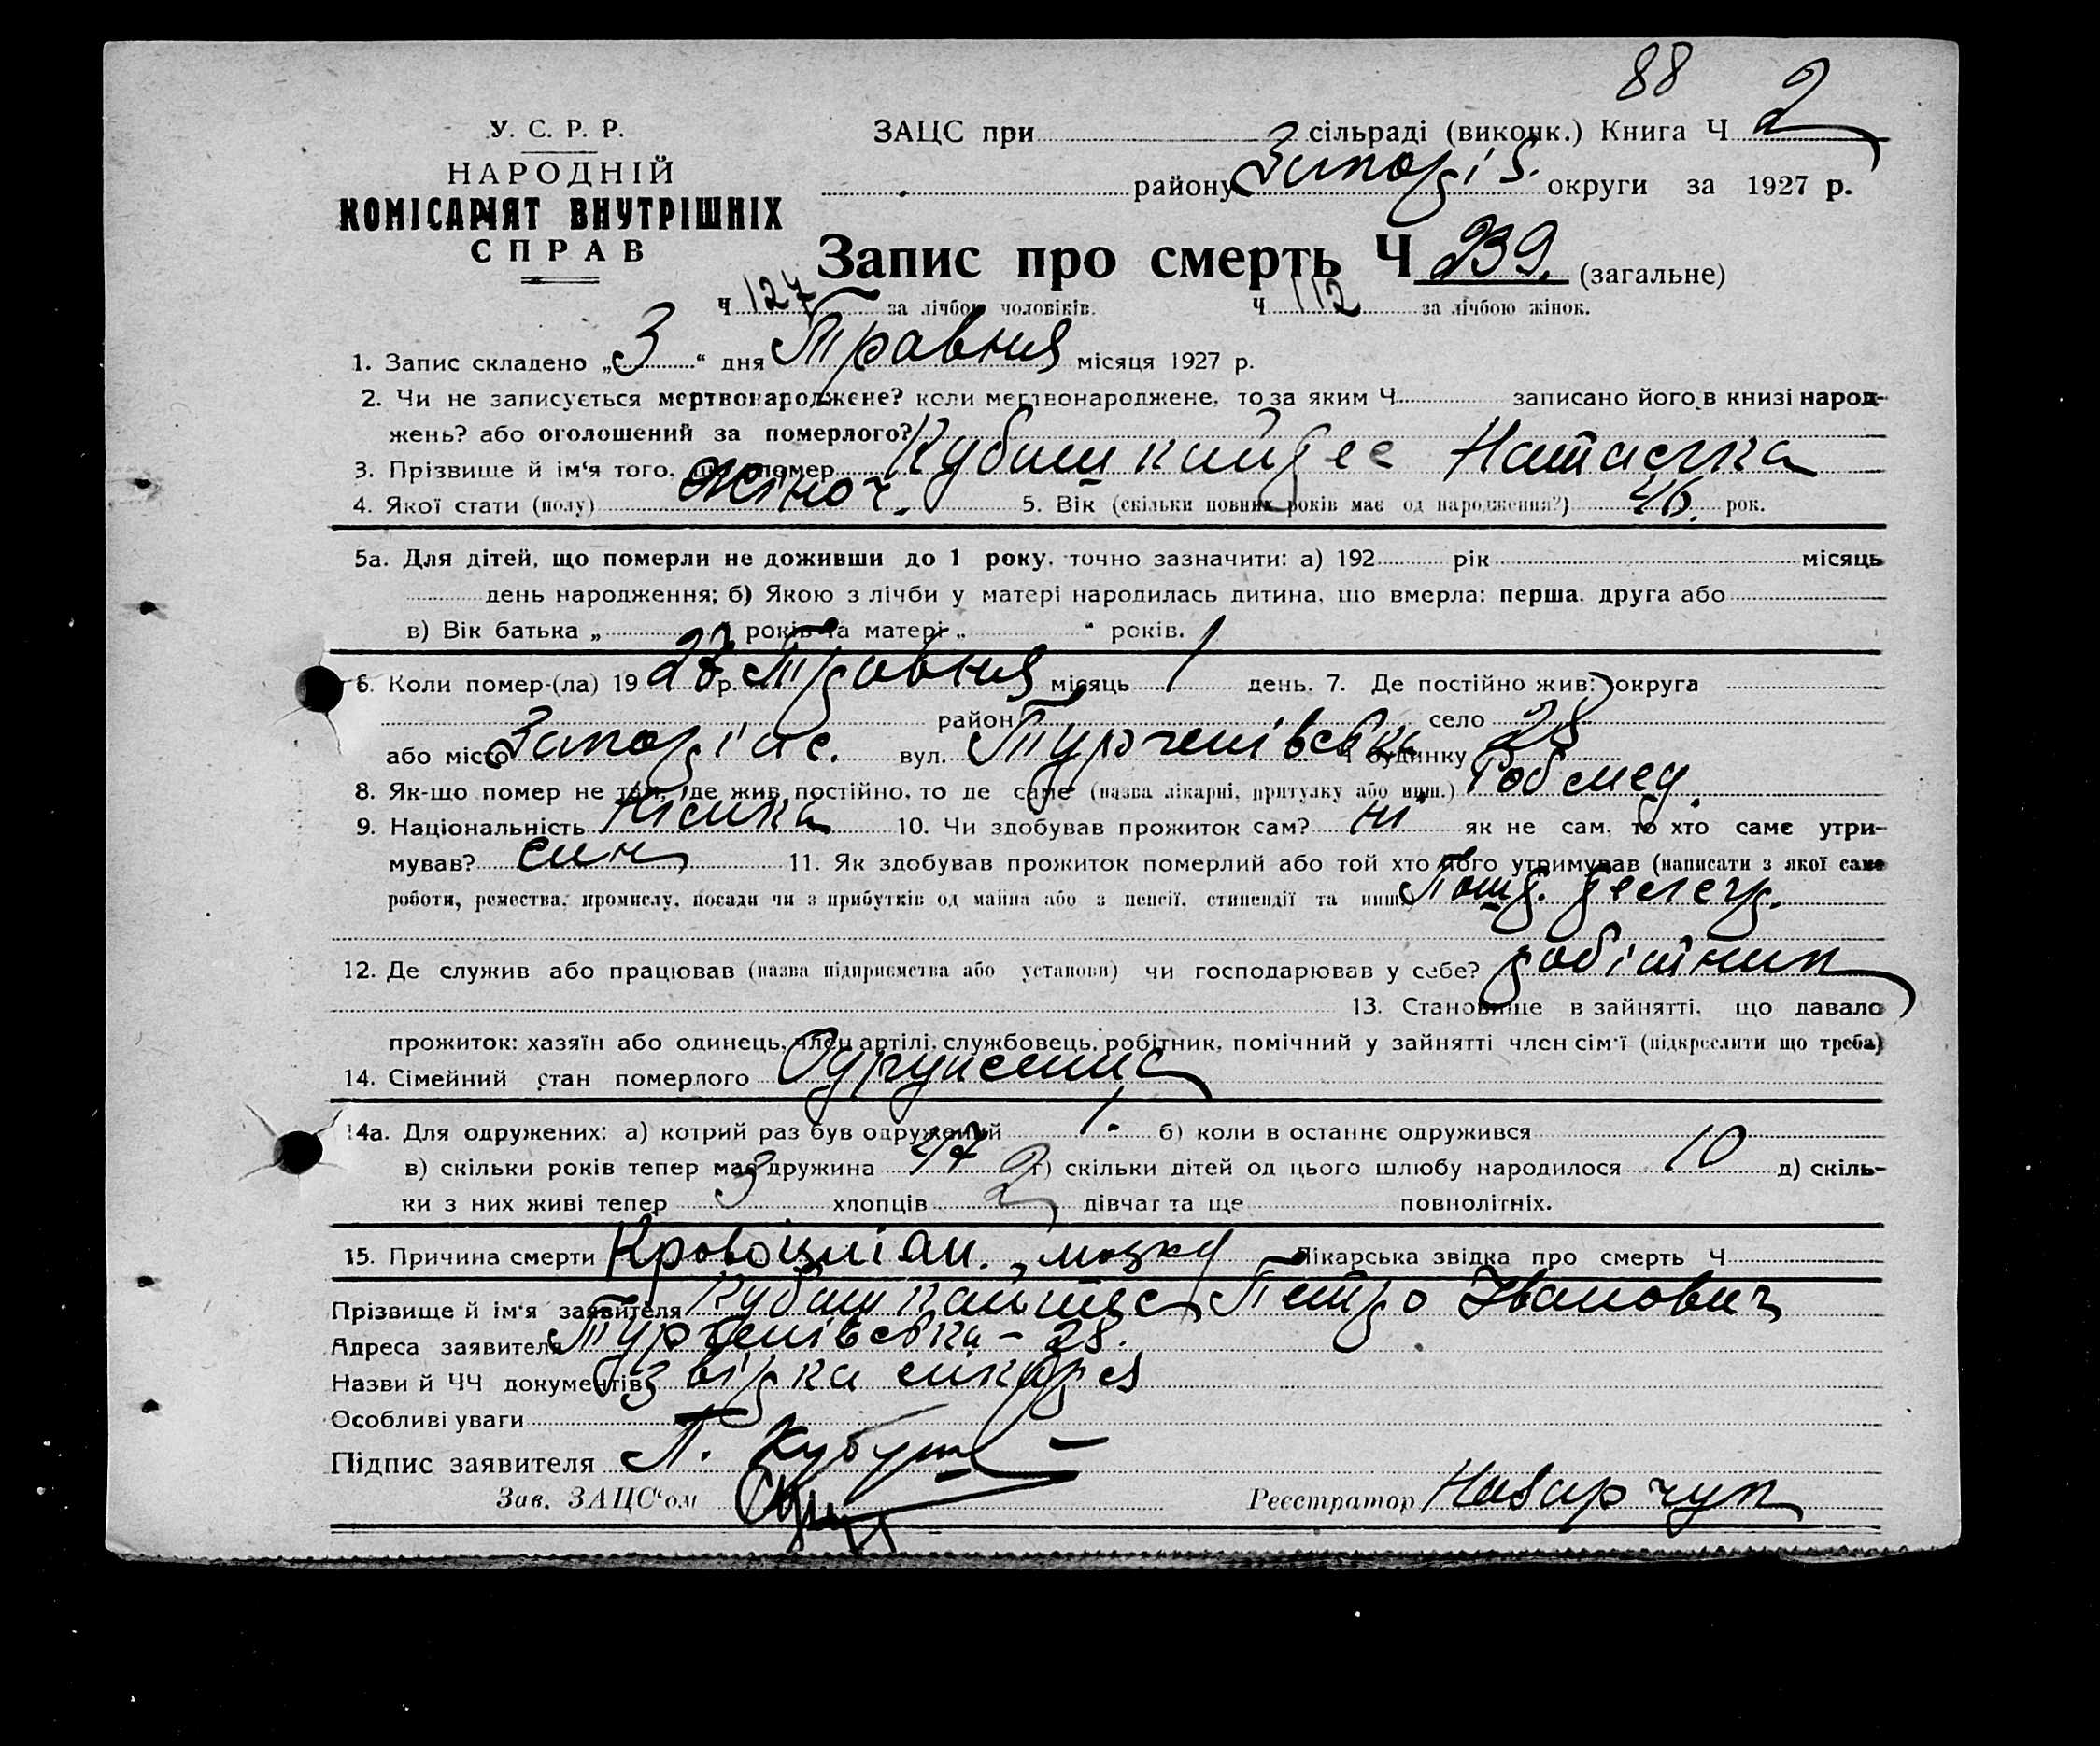 88
У. С. Р. Р.
ЗАЦС при сільраді (виконк.) Книга Ч 2
НАРОДНІЙ
району округи за 1927 р.
КОМІСАРІЯТ ВНУТРІШНІХ
СПРАВ
Запис про смерть Ч 239. (загальне)
Ч 127 за лічбою чоловіків. Ч 112 за лічбою жінок.
1. Запис складено „3“ дня Травня місяця 1927 р.
2. Чи не записується мертвонароджене? коли мертвонароджене, то за яким Ч записано його в книзі народ-
жень? або оголошений за померлого?
3. Прізвище й ім‘я того, що помер
4. Якої стати (полу) Жіноч. 5. Вік (скільки повних років має од народження?) 46. рок.
5а. Для дітей, що померли не доживши до 1 року, точно зазначити: а) 192 рік місяць
день народження; б) Якою з лічби у матері народилась дитина, що вмерла: перша, друга або
в) Вік батька „ “ років та матері „ “ років.
6. Коли помер-(ла) 19 27 р. Травня місяць 1 день. 7. Де постійно жив: округа
район село
або місто вул. Тургенівська Ч будинку 28
8. Як-що помер не там, де жив постійно, то де саме (назва лікарні, притулку або инш.) Робмед.
9. Національність Німка 10. Чи здобував прожиток сам? ні як не сам, то хто саме утри-
мував? син 11. Як здобував прожиток померлий або той хто його утримував (написати з якої саме
роботи, ремества, промислу, посади чи з прибутків од майна або з пенсії, стипендії та инш.)
12. Де служив або працював (назва підприємства або установи) чи господарював у себе? робітник
13. Становище в зайнятті, що давало
прожиток: хазяїн або одинець, член артілі, службовець, робітник, помічний у зайнятті член сім‘ї (підкреслити що треба)
14. Сімейний стан померлого Одружена
14а. Для одружених: а) котрий раз був одружений 1. б) коли в останнє одружився
в) скільки років тепер має дружина 47 г) скільки дітей од цього шлюбу народилося 10 д) скіль-
ки з них живі тепер 3 хлопців 2 дівчат та ще повнолітніх.
15. Причина смерти мозку Лікарська звідка про смерть Ч
Прізвище й ім‘я заявителя Петро Іванович
Адреса заявителя Тургенівська – 28.
Назви й ЧЧ документів звідка лікаря
Особливі уваги
Підпис заявителя П.
Зав. ЗАЦС‘ом Реєстратор Назарчук